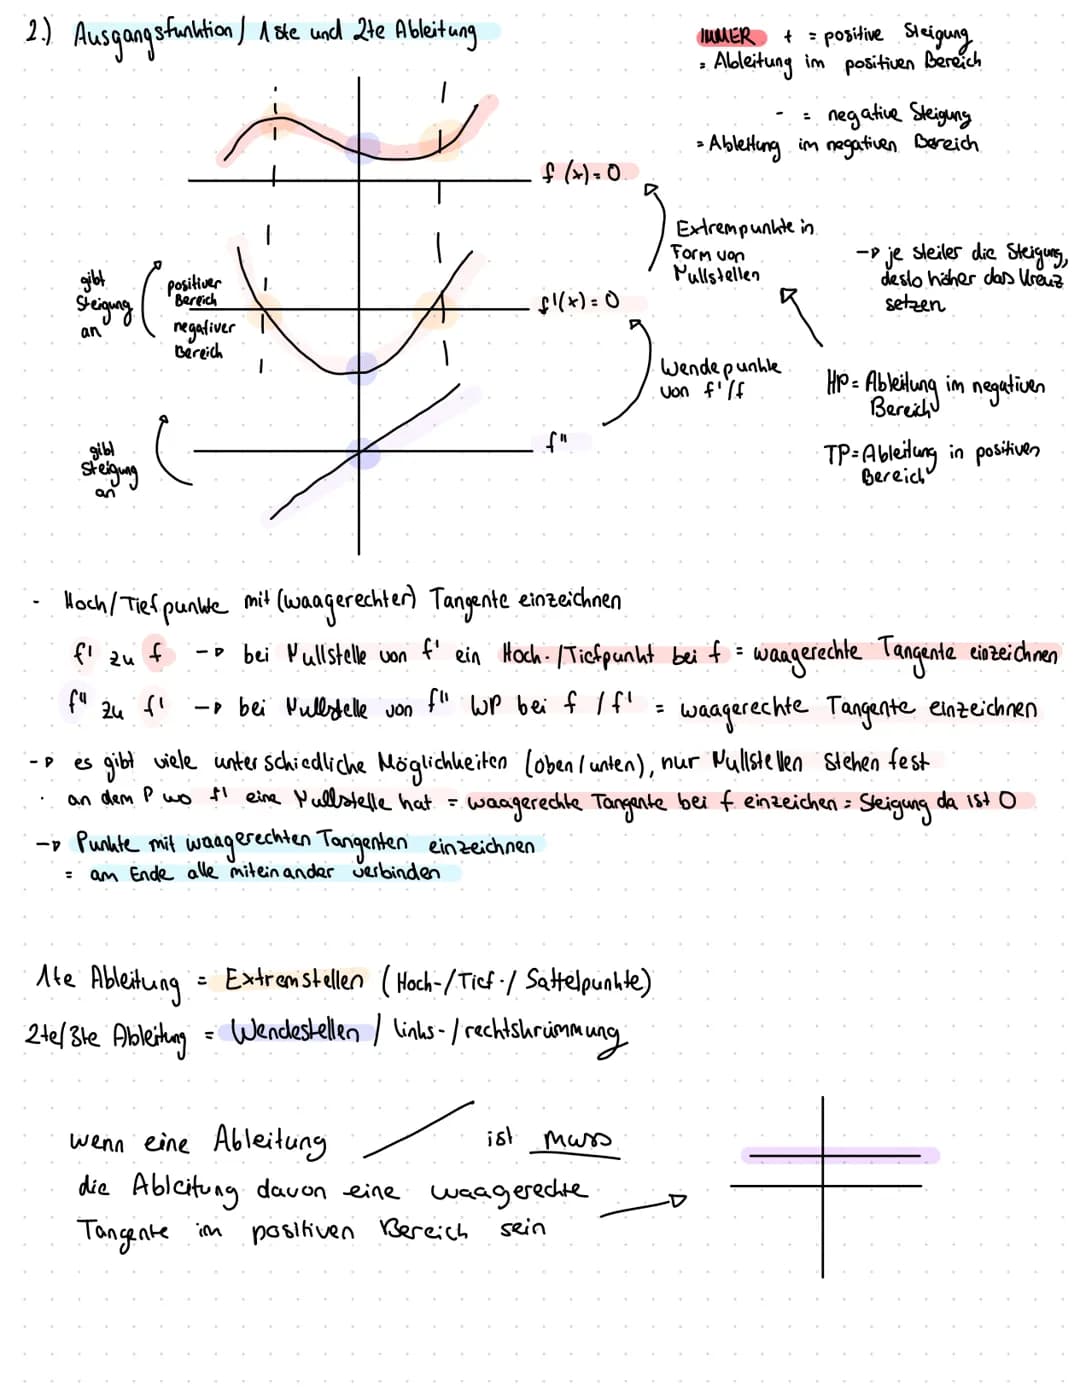 2.) Ausgangsfunktion / 1ste und 2te Ableitung
IMMER + = positive Steigung
= Ableitung im positiven Bereich
- = negative Steigung
= Ableitung im negativen Bereich
f (x) = 0
Extrempunkte in
Form von
Nullstellen
-> je steiler die Steigung,
desto höher das Kreuz
setzen
gibt
Steigung
an
positiver
Bereich
negativer
Bereich
f'(x) = 0
Wendepunkte
von f'/f
HP = Ableitung im negativen
Bereich
TP = Ableitung in positiven
Bereich
gibt
Steigung
an
f"
- Hoch/Tiefpunkte mit (waagerechter) Tangente einzeichnen
f' zu f -> bei Nullstelle von f' ein Hoch-/Tiefpunkt bei f = waagerechte Tangente einzeichnen
f" zu f' -> bei Nullstelle von f" WP bei f / f' = waagerechte Tangente einzeichnen
-> es gibt viele unterschiedliche Möglichkeiten (oben/unten), nur Nullstellen stehen fest
· an dem P wo f' eine Nullstelle hat = waagerechte Tangente bei f einzeichen = Steigung da ist 0
-> Punkte mit waagerechten Tangenten einzeichnen
= am Ende alle miteinander verbinden
1te Ableitung = Extremstellen (Hoch-/Tief-/ Sattelpunkte)
2te/3te Ableitung = Wendestellen / links-/rechtskrümmung
wenn eine Ableitung ist muss
die Ableitung davon eine waagerechte
Tangente im positiven Bereich sein